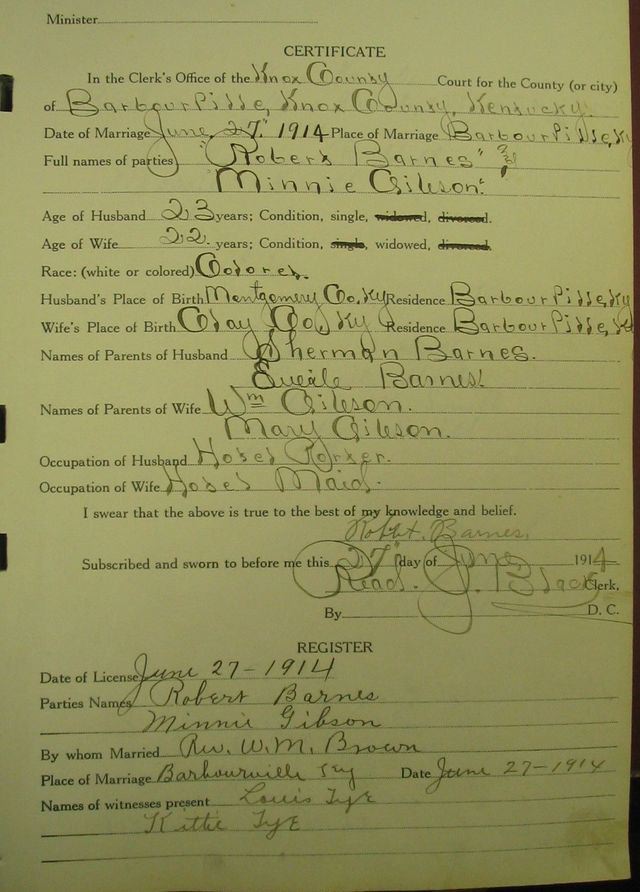 Minister
CERTIFICATE
In the Clerk's Office of the Knox County Court for the County (or city)
of Barbourville, Knox County, Kentucky.
Date of Marriage June, 27" 1914 Place of Marriage Barbourville, Ky
Full names of parties "Robert Barnes" &
Minnie Gibson".
Age of Husband 23 years; Condition, single, widowed, divorced.
Age of Wife 22. years; Condition, single, widowed, divorced.
Race: (white or colored) Colored.
Husband's Place of Birth Montgomery Co. Ky Residence Barbourville, Ky
Wife's Place of Birth Clay Co, Ky Residence Barbourville, Ky
Names of Parents of Husband Sherman Barnes.
Barnes.
Names of Parents of Wife Wm Gibson.
Mary Gibson.
Occupation of Husband Hotel Porter.
Occupation of Wife Hotel Maid.
I swear that the above is true to the best of my knowledge and belief.
Robt. Barnes.
Subscribed and sworn to before me this 27" day of June, 1914
Read. J. Black Clerk.
By D. C.
REGISTER
Date of License June 27-1914
Parties Names Robert Barnes
Minnie Gibson
By whom Married Rev. W. M. Brown
Place of Marriage Barbourville Ky Date June 27-1914
Names of witnesses present Louis Tye
Kittie Tye